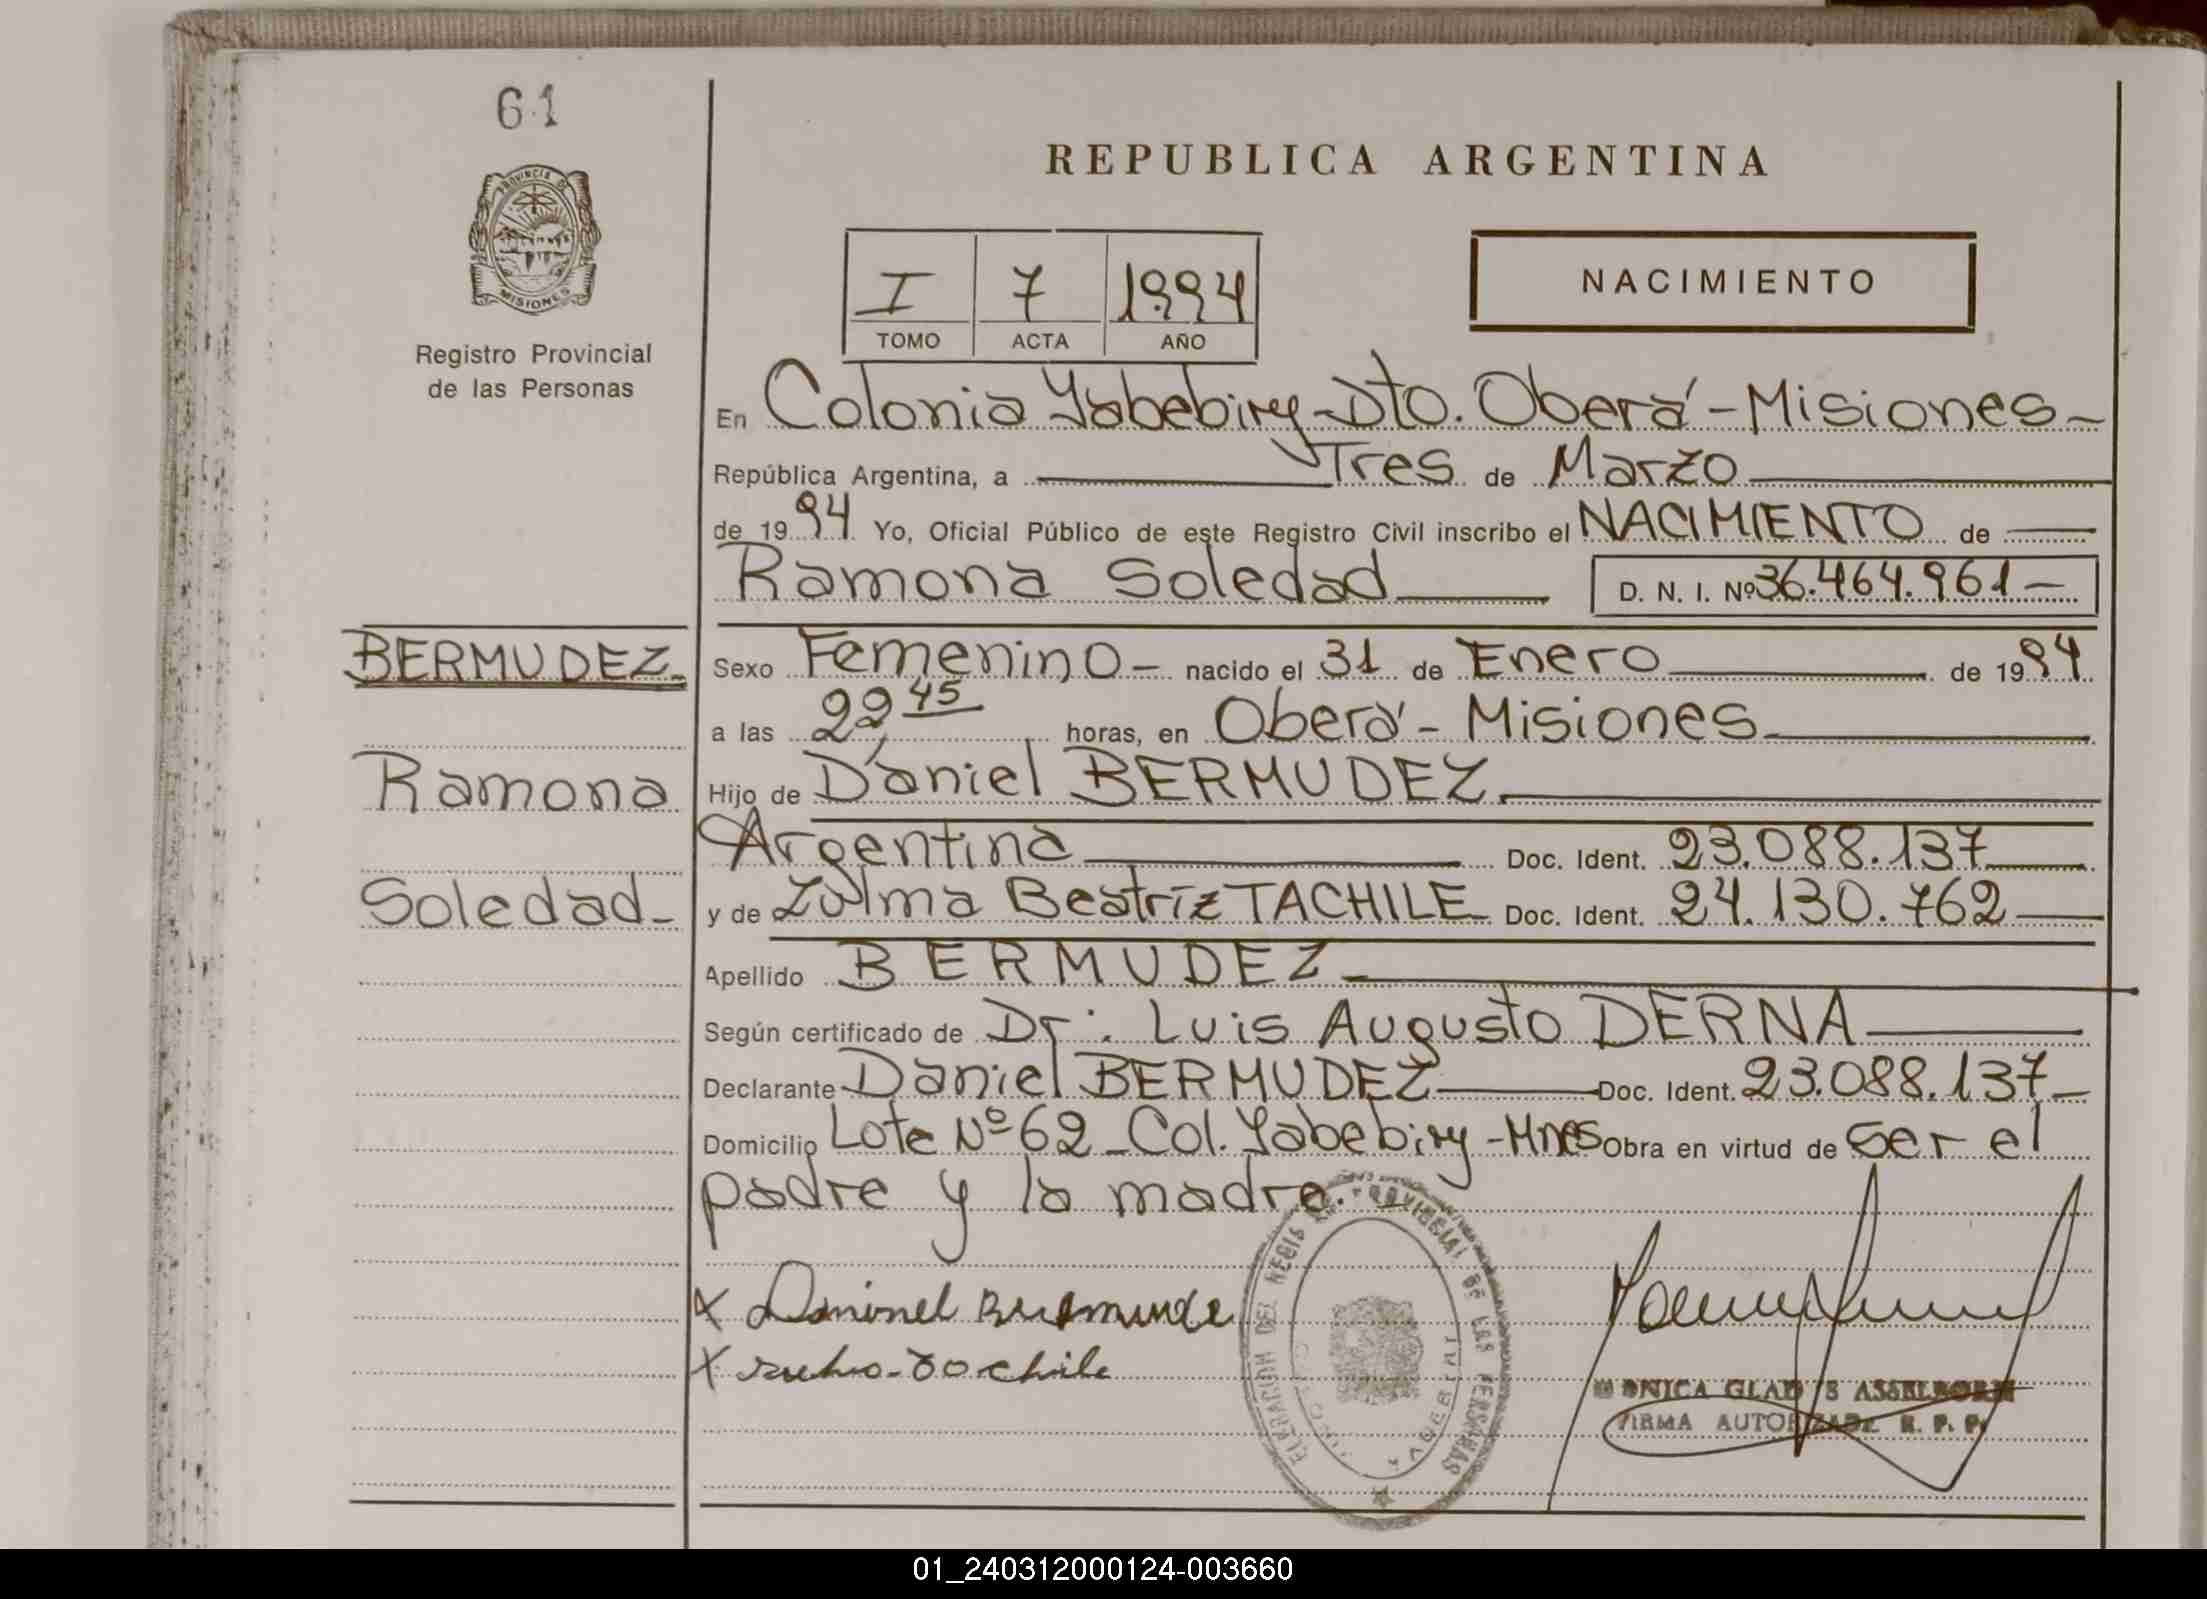 61
PROVINCIA DE
MISIONES
Registro Provincial
de las Personas
REPUBLICA ARGENTINA
I 7 1994
TOMO ACTA AÑO
NACIMIENTO
En Colonia Yabebiry - Dto. Oberá - Misiones -
República Argentina, a Tres de Marzo
de 1994 Yo, Oficial Público de este Registro Civil inscribo el NACIMIENTO de
Ramona Soledad D. N. I. Nº 36.464.961 -
BERMUDEZ
Ramona
Soledad -
Sexo Femenino - nacido el 31 de Enero de 1994
a las 22 45 horas, en Oberá - Misiones
Hijo de Daniel BERMUDEZ
Argentina Doc. Ident. 23.088.137
y de Zulma Beatríz TACHILE Doc. Ident. 24.130.762
Apellido BERMUDEZ
Según certificado de Dr: Luis Augusto DERNA
Declarante Daniel BERMUDEZ Doc. Ident. 23.088.137 -
Domicilio Lote Nº 62 - Col. Yabebiry - Mnes Obra en virtud de ser el
padre y la madre.
X
X
FIRMA AUTORIZADA R. P. P.
01_240312000124-003660